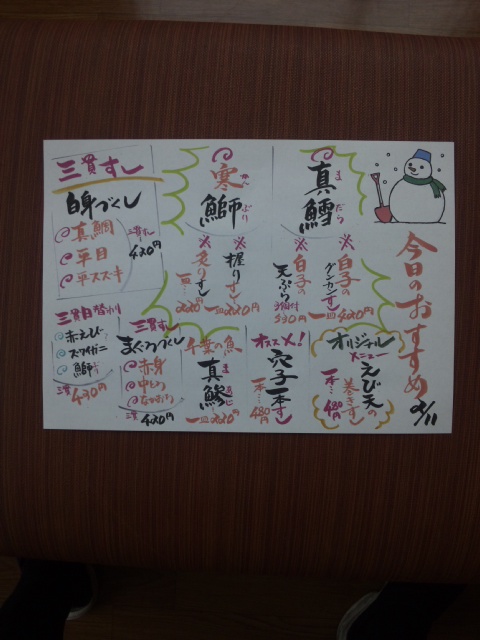 今日のおすすめ
2/11
真鱈
まだら
※白子の
グンカンすし
一皿420円
※白子の
天ぷら
寒鰤
かんぶり
※握りすし
※炙りすし
三貫すし
白身づくし
真鯛
平目
平スズキ
三貫
420円
オリジナル
メニュー
えび天の
巻きずし
一本…480円
オススメ!
穴子一本すし
一本…480円
千葉の魚
真鯵
まあじ
三貫すし
まぐろづくし
赤身
中とろ
三貫
420円
三貫日替わり
赤えび
ズワイガニ
鰤
三貫
430円